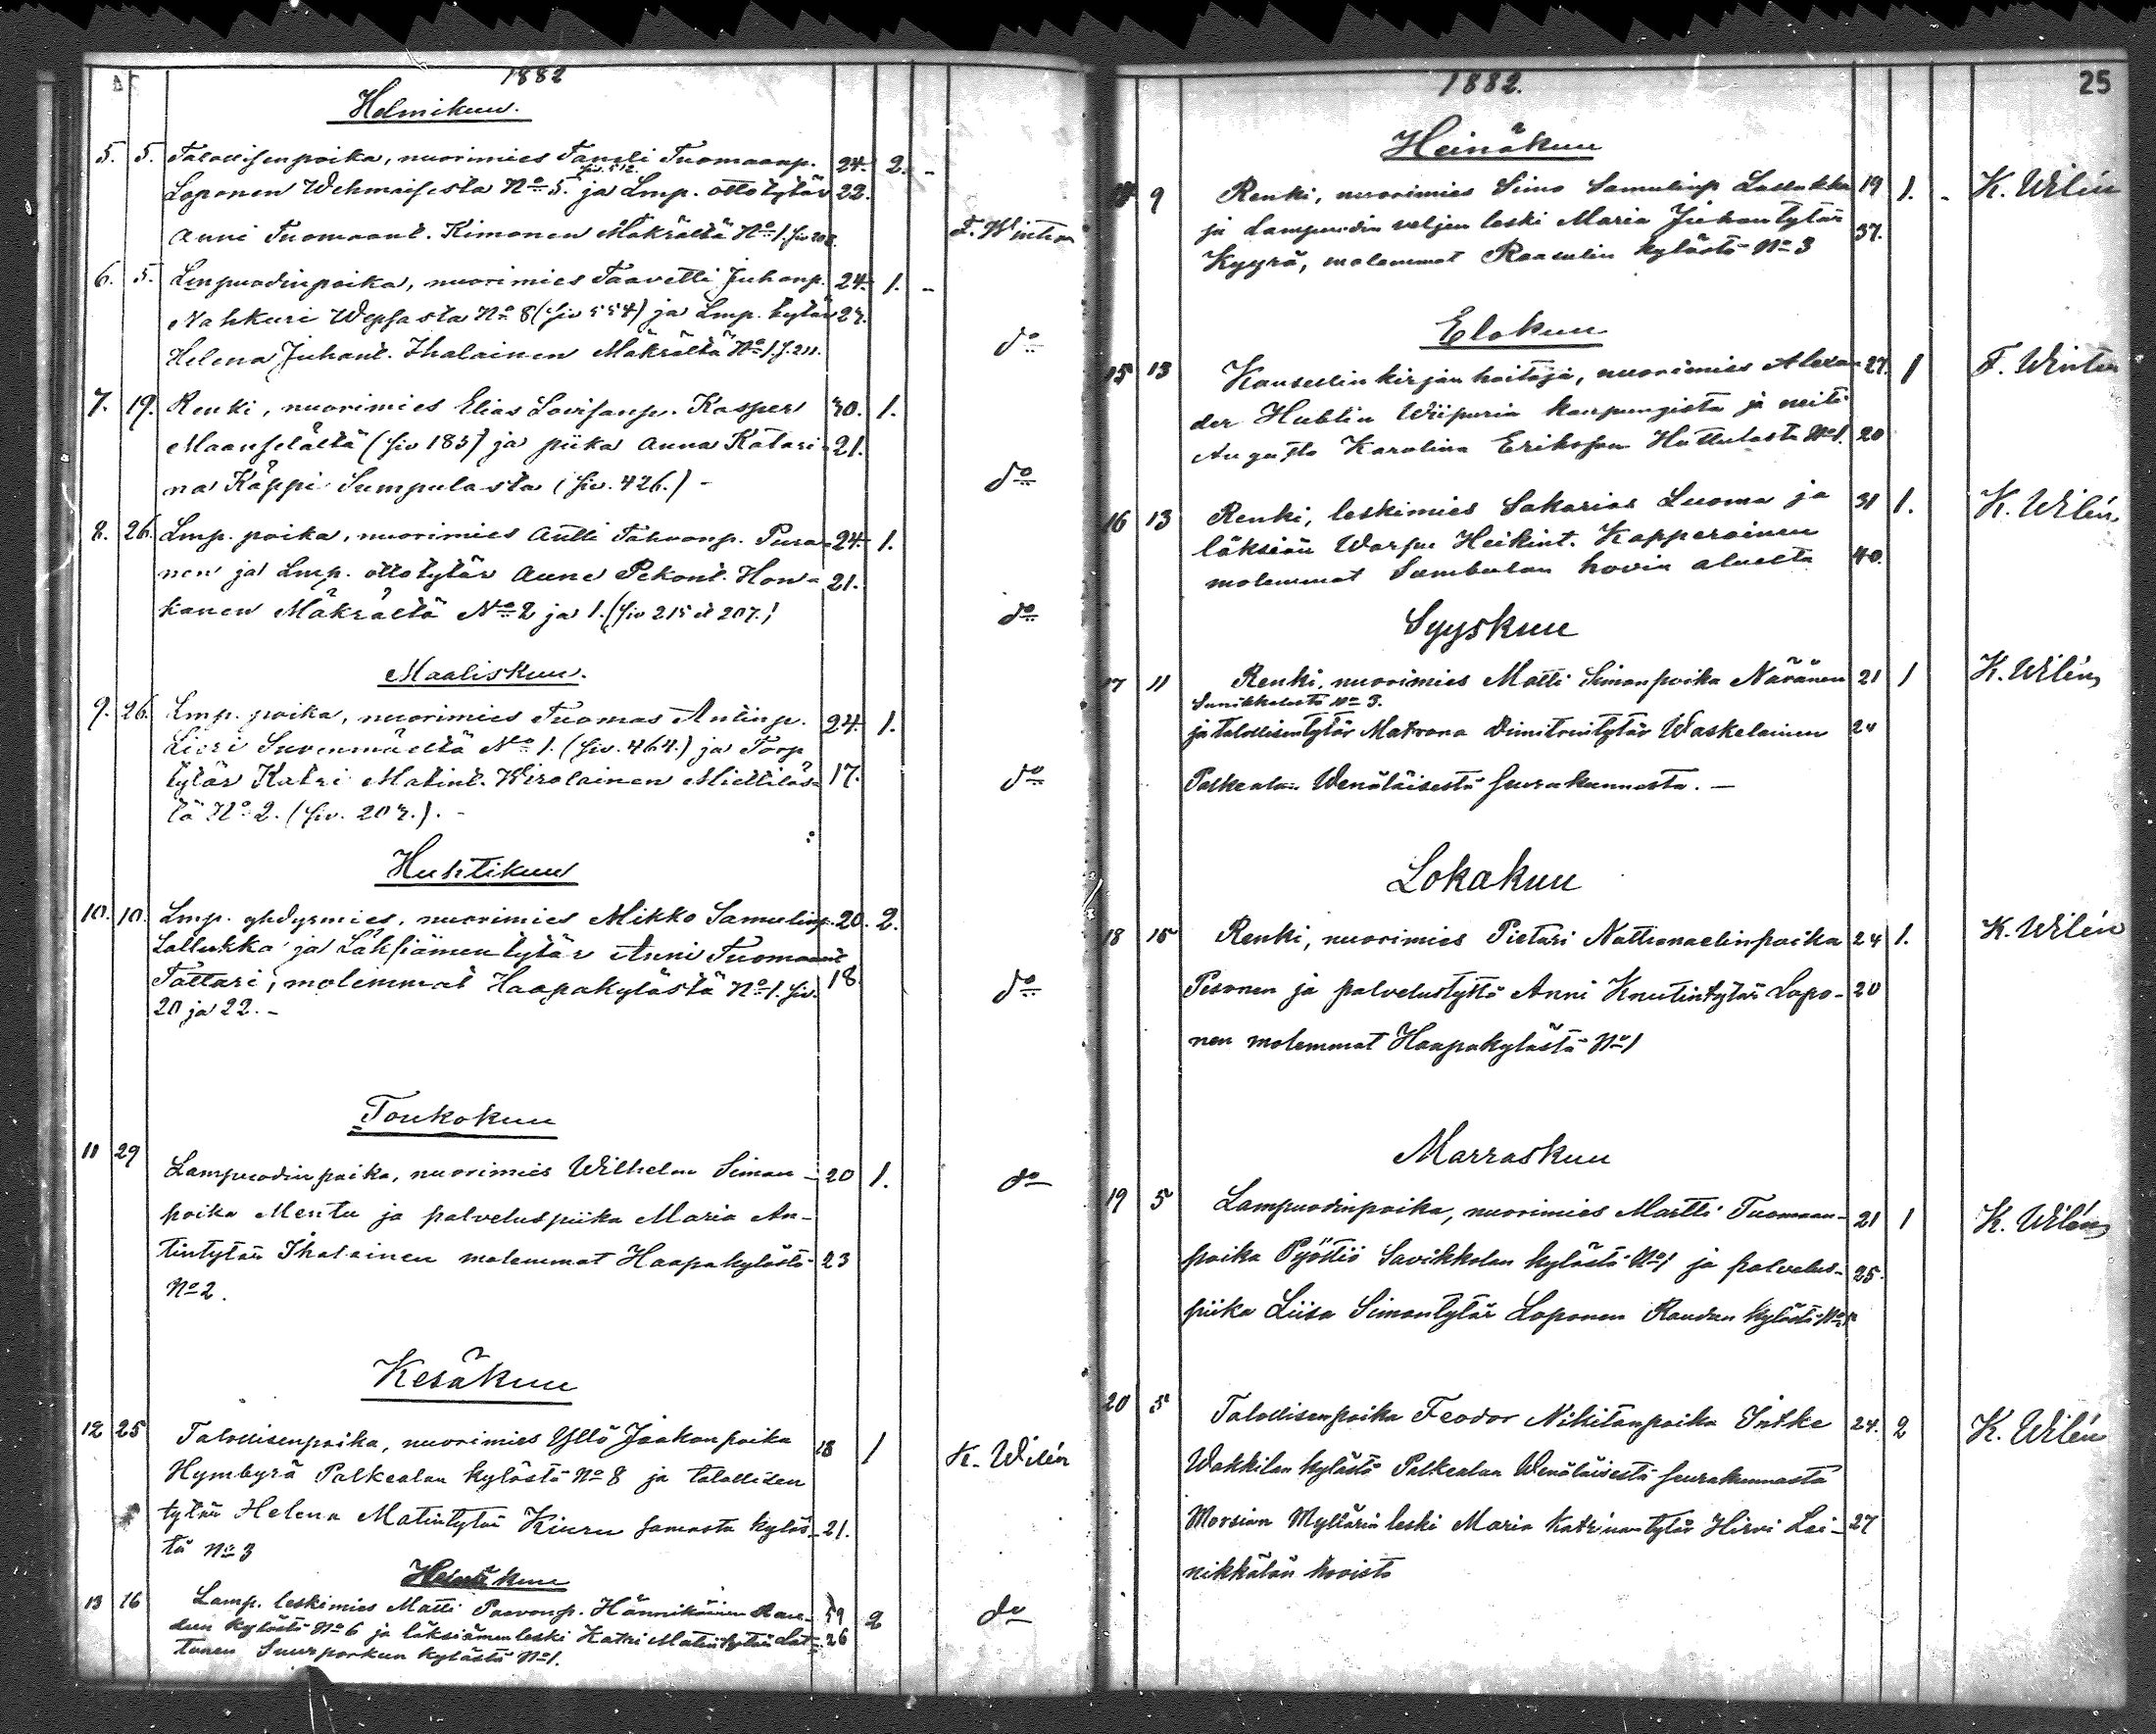 1882
Helmikuu.
5. 5. Talollisenpoika, nuorimies Taneli Tuomaanp. 24. 2. -
siv. 512.
Loponen Wehmaisesta No 5. ja Lmp. ottotytär 22.
Anni Tuomaant. Kimonen Mäkrältä No 1. F. Winter
6. 5. Lmpuodinpoika, nuorimies Taavetti Juhanp. 24. 1. -
Nahkuri Wepsasta No 8 (siv 554) ja Lmp. tytär 27.
Helena Juhant. Ihalainen Mäkrältä No 1. s. 211. do
7. 19. Renki, nuorimies Elias Lovisanp. Kasper 30. 1.
Maanselältä (siv 185) ja piika Anna Katari- 21.
na Käppi Sumpulasta (siv. 426.) - do
8. 26. Lmp. poika, nuorimies Antti Tahvonp. Pura- 24. 1.
nen ja Lmp. ottotytär Anna Pekant. Hon- 21.
kanen Mäkrältä No 2 ja 1. (siv 215 & 207.) do
Maaliskuu.
9. 26. Lmp. poika, nuorimies Tuomas Antinp. 24. 1.
Lieri Suvenmäeltä No 1. (siv. 464.) ja Torp
tytär Katri Matint. Wirolainen Miettiläs- 17. do
tä No 2. (siv. 207.). -
Huhtikuu
10. 10. Lmp. yhdysmies, nuorimies Mikko Samulinp. 20. 2.
Lallukka ja Läksiäimen tytär Anni Tuomaant
Tattari, molemmat Haapakylästä No 1. siv. 18 do
20 ja 22. -
Toukokuu
11 29 Lampuodinpoika, nuorimies Wilhelm Siman- 20 1. do
poika Mentu ja palveluspiika Maria An-
tintytär Ihalainen molemmat Haapakylästä 23
No 2.
Kesäkuu
12 25 Talollisenpoika, nuorimies Yllö Jaakonpoika 18 1 K. Wilén
Hymbyrä Palkealan kylästä No 8 ja talollisen
tytär Helena Matintytär Kiuru samasta kyläs- 21.
tä No 3
Heinäkuu
13 16 Lamp. leskimies Matti Paavonp. Hännikäinen Rau- 59 2 do
dun kylästä No 6 ja läksiäimen leski Katri Matintytär Lat- 26
tunen Suurporkun kylästä No 1.
1882. 25
Heinäkuu
14 9 Renki, nuorimies Simo Samulinp Lallukka 19 1. - K. Wilén
ja Lampuodin veljen leski Maria Juhontytär 37.
Kyyrä, molemmat Raasulin kylästä No 3
Elokuu
15 13 Kansellin kirjan hoitaja, nuorimies Alexan- 27. 1 F. Winter
der Hublin Wiipurin kaupungista ja neiti
Augusta Karolina Eriksson Huttulasta No 1. 20
16 13 Renki, leskimies Sakarias Luoma ja 31 1. K. Wilén
läksiän Warpu Heikint. Kapperainen
molemmat Sumbulan hovin aluelta 40.
Syyskuu
17 11 Renki, nuorimies Matti Simonpoika Näränen 21 1 K. Wilén
Sunikkalasta No 3.
ja talollisentytär Matrona Dimitrintytär Waskelainen 24
Palkealan Wenäläisestä seurakunnasta. -
Lokakuu
18 15 Renki, nuorimies Pietari Nattanaelinpoika 24 1. K. Wilén
Pesonen ja palvelustyttö Anni Knutintytär Lopo- 20
nen molemmat Haapakylästä No 1
Marraskuu
19 5 Lampuodinpoika, nuorimies Martti Tuomaan- 21 1 K. Wilén
poika Pyöttiö Savikkolan kylästä No 1 ja palvelus- 25.
piika Liisa Simontytär Loponen Raudun kylästä No
20 5 Talollisenpoika Feodor Nikitanpoika Intke 24. 2 K. Wilén
Wakkilan kylästä Palkealan Wenäläisestä seurakunnasta
Morsian Myllärin leski Maria Katrinantytär Hirvi Lei- 27
nikkälän hovista